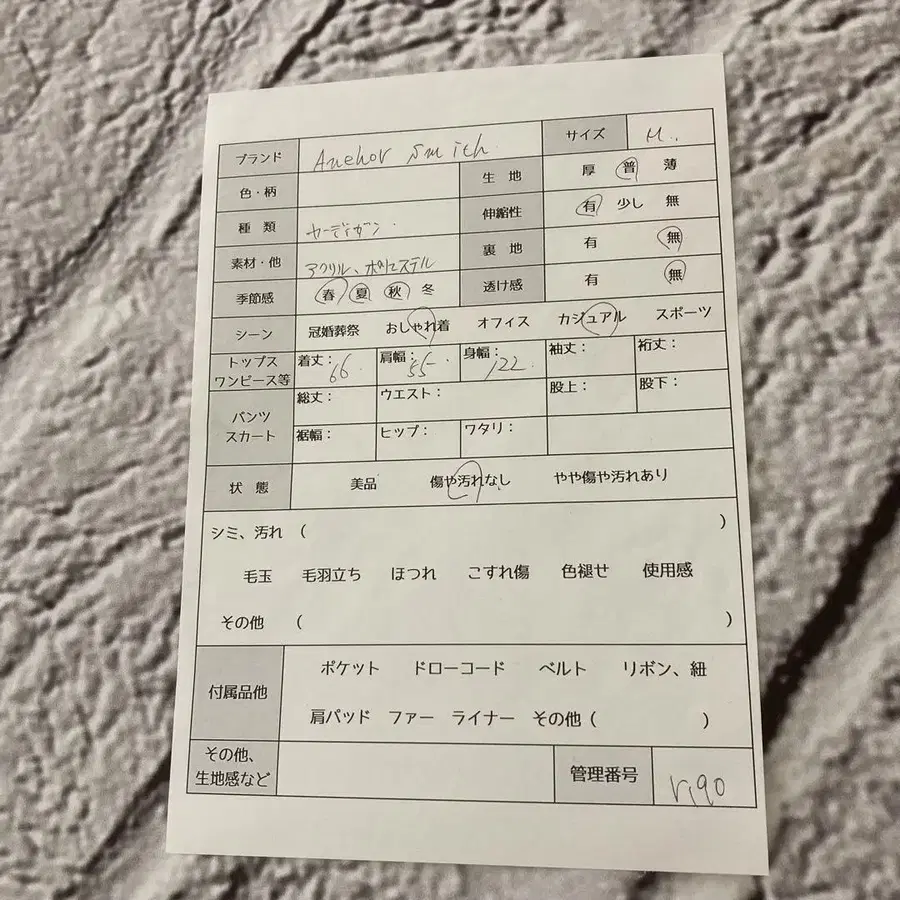 ブランド Anehor Smich サイズ M..
色・柄 生 地 厚 普 薄
種 類 カーディガン. 伸縮性 有 少し 無
素材・他 アクリル、ポリエステル 裏 地 有 無
季節感 春 夏 秋 冬 透け感 有 無
シーン 冠婚葬祭 おしゃれ着 オフィス カジュアル スポーツ
トップス ワンピース等 着丈: 66. 肩幅: 55. 身幅: 122. 袖丈: 裄丈:
パンツ スカート 総丈: ウエスト: 股上: 股下:
裾幅: ヒップ: ワタリ:
状 態 美品 傷や汚れなし やや傷や汚れあり
シミ、汚れ ( )
毛玉 毛羽立ち ほつれ こすれ傷 色褪せ 使用感
その他 ( )
付属品他 ポケット ドローコード ベルト リボン、紐
肩パッド ファー ライナー その他 ( )
その他、
生地感など 管理番号 r190